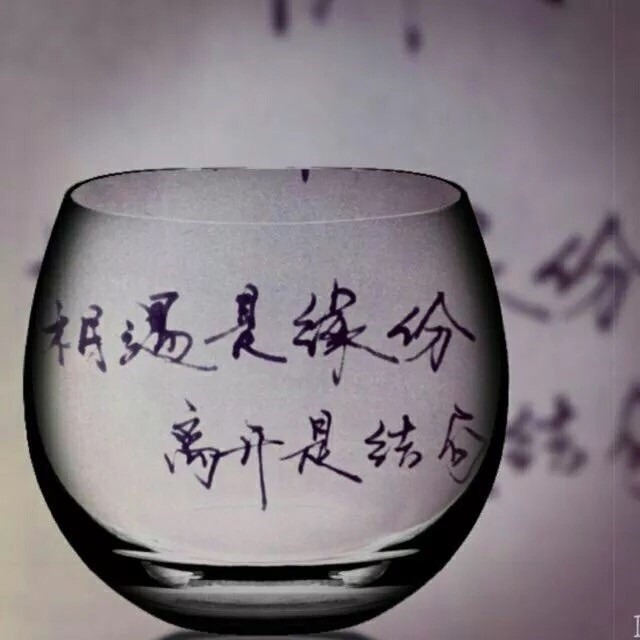 相遇是缘份
离开是结局